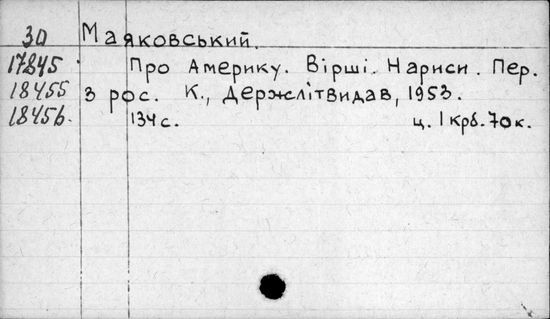 30 Маяковський.
17845 Про Америку. Вірші. Нариси. Пер.
18455 з рос. К., Держлітвидав, 1953.
18456. 134 с. ц. 1 крб. 70 к.